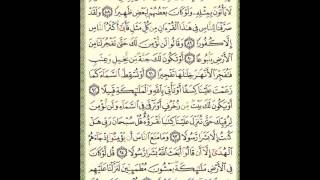 لَا يَأْتُونَ بِمِثْلِهِۦ وَلَوْ كَانَ بَعْضُهُمْ لِبَعْضٍ ظَهِيرًا ٨٨ وَلَقَدْ
صَرَّفْنَا لِلنَّاسِ فِي هَٰذَا ٱلْقُرْءَانِ مِن كُلِّ مَثَلٍ فَأَبَىٰٓ أَكْثَرُ ٱلنَّاسِ
إِلَّا كُفُورًا ٨٩ وَقَالُوا۟ لَن نُّؤْمِنَ لَكَ حَتَّىٰ تَفْجُرَ لَنَا مِنَ
ٱلْأَرْضِ يَنۢبُوعًا ٩٠ أَوْ تَكُونَ لَكَ جَنَّةٌ مِّن نَّخِيلٍ وَعِنَبٍ
فَتُفَجِّرَ ٱلْأَنْهَٰرَ خِلَٰلَهَا تَفْجِيرًا ٩١ أَوْ تُسْقِطَ ٱلسَّمَآءَ كَمَا
زَعَمْتَ عَلَيْنَا كِسَفًا أَوْ تَأْتِيَ بِٱللَّهِ وَٱلْمَلَٰٓئِكَةِ قَبِيلًا ٩٢
أَوْ يَكُونَ لَكَ بَيْتٌ مِّن زُخْرُفٍ أَوْ تَرْقَىٰ فِي ٱلسَّمَآءِ وَلَن نُّؤْمِنَ
لِرُقِيِّكَ حَتَّىٰ تُنَزِّلَ عَلَيْنَا كِتَٰبًا نَّقْرَؤُهُۥ قُلْ سُبْحَانَ رَبِّي هَلْ
كُنتُ إِلَّا بَشَرًا رَّسُولًا ٩٣ وَمَا مَنَعَ ٱلنَّاسَ أَن يُؤْمِنُوٓا۟ إِذْ جَآءَهُمُ
ٱلْهُدَىٰٓ إِلَّآ أَن قَالُوٓا۟ أَبَعَثَ ٱللَّهُ بَشَرًا رَّسُولًا ٩٤ قُل لَّوْ كَانَ
فِي ٱلْأَرْضِ مَلَٰٓئِكَةٌ يَمْشُونَ مُطْمَئِنِّينَ لَنَزَّلْنَا عَلَيْهِم